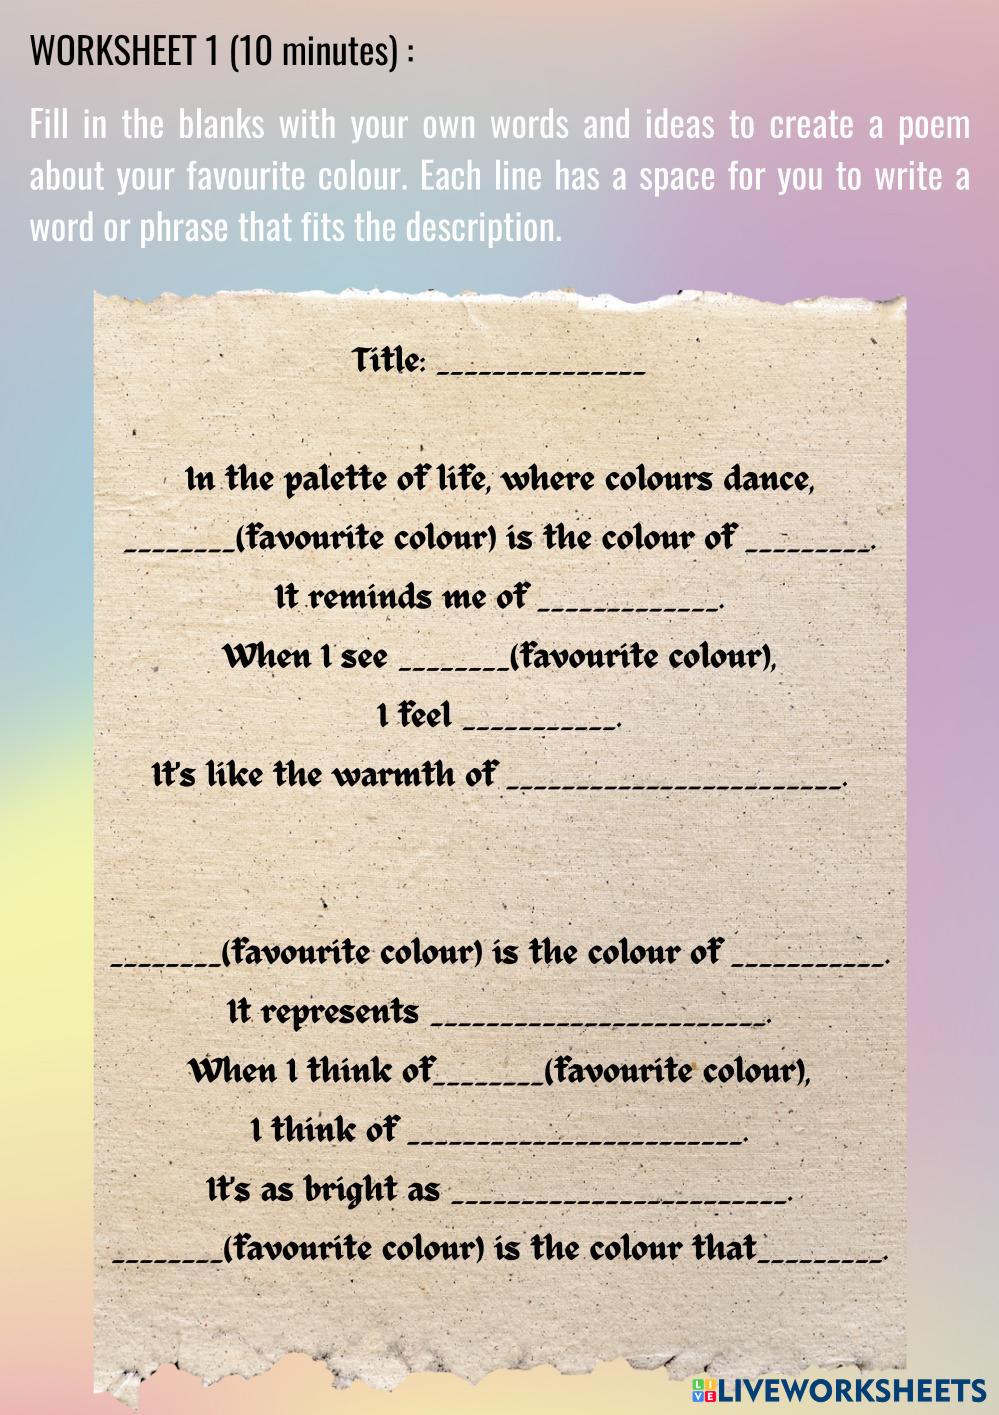 WORKSHEET 1 (10 minutes) :
Fill in the blanks with your own words and ideas to create a poem
about your favourite colour. Each line has a space for you to write a
word or phrase that fits the description.
Title: _______________
In the palette of life, where colours dance,
________(favourite colour) is the colour of _________.
It reminds me of _____________.
When I see ________(favourite colour),
I feel ___________.
It's like the warmth of ________________________.
________(favourite colour) is the colour of ___________.
It represents ________________________.
When I think of________(favourite colour),
I think of ________________________.
It's as bright as ________________________.
________(favourite colour) is the colour that_________.
LIVE LIVEWORKSHEETS